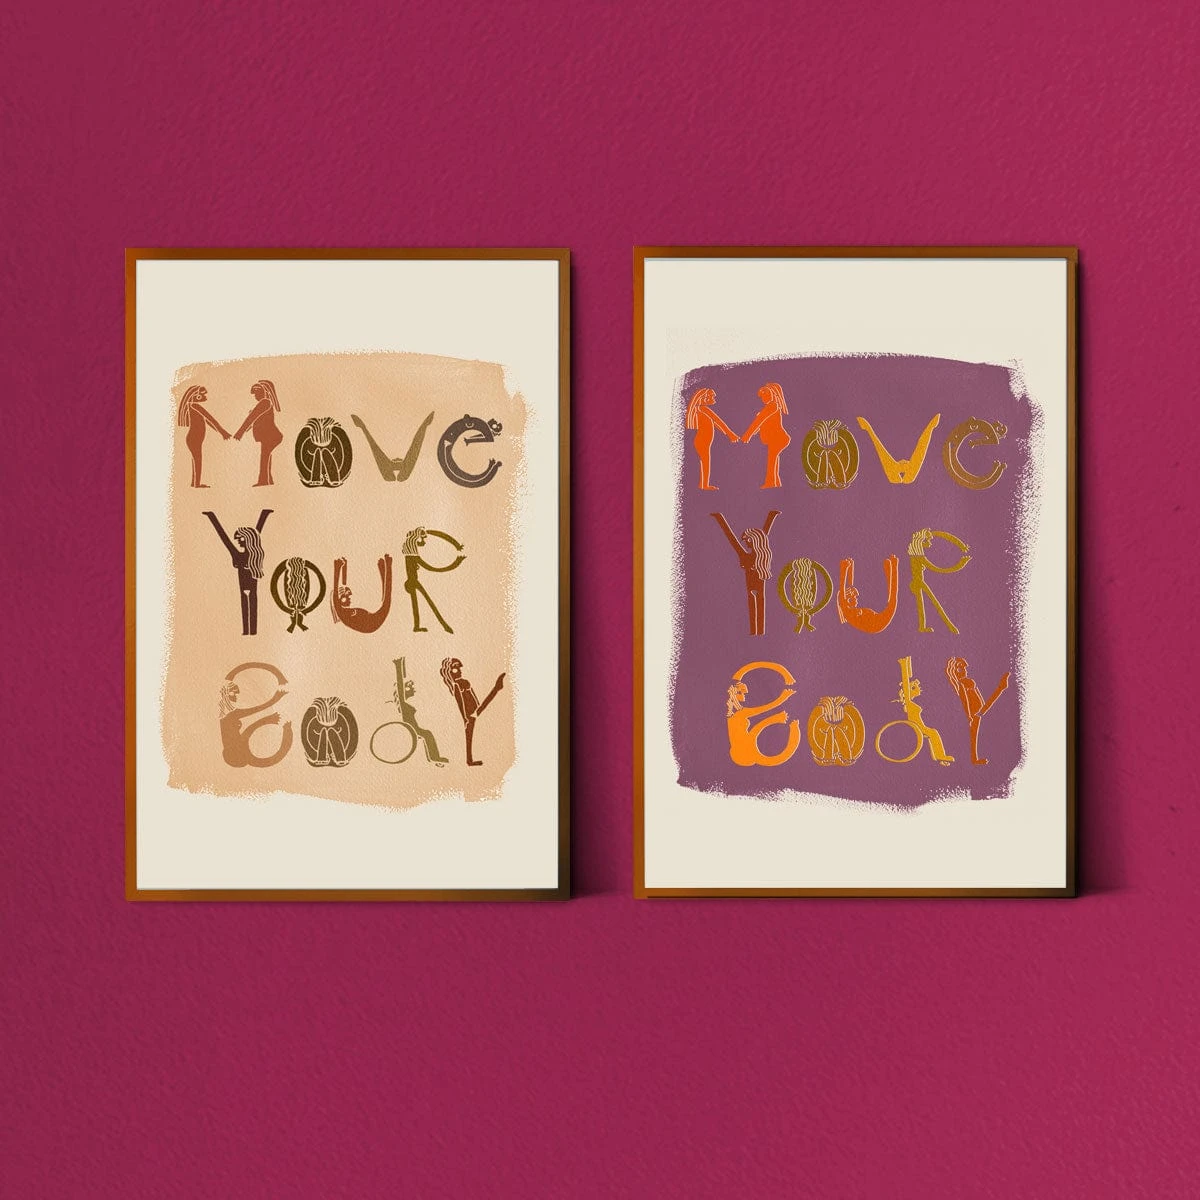 Move
Your
Body
Move
Your
Body